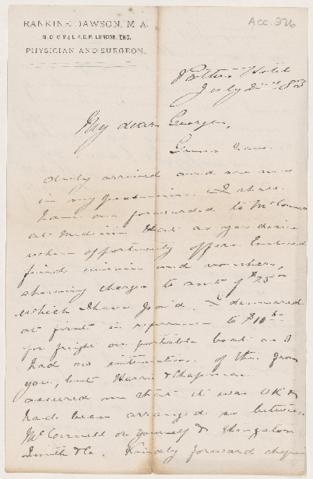 Acc. 326
RANKINE DAWSON, M.A.
M.D. C.M. & L.R.C.P. LONDON, ENG.
PHYSICIAN AND SURGEON.
Hotel
July 83
My dear George,
duly arrived and are now
in my possession. I shall
have one forwarded to McConnell
at Medicine Hat as you desire
when opportunity offers. Enclosed
find and vouchers,
showing charges to amt of $25
which I have paid. I demurred
at first in reference to $10
for freight on portable boat as I
had no intimation of this from
you, but &
assured me that it was OK &
had been arranged so between
McConnell or yourself &
Smith & Co. Kindly forward cheque